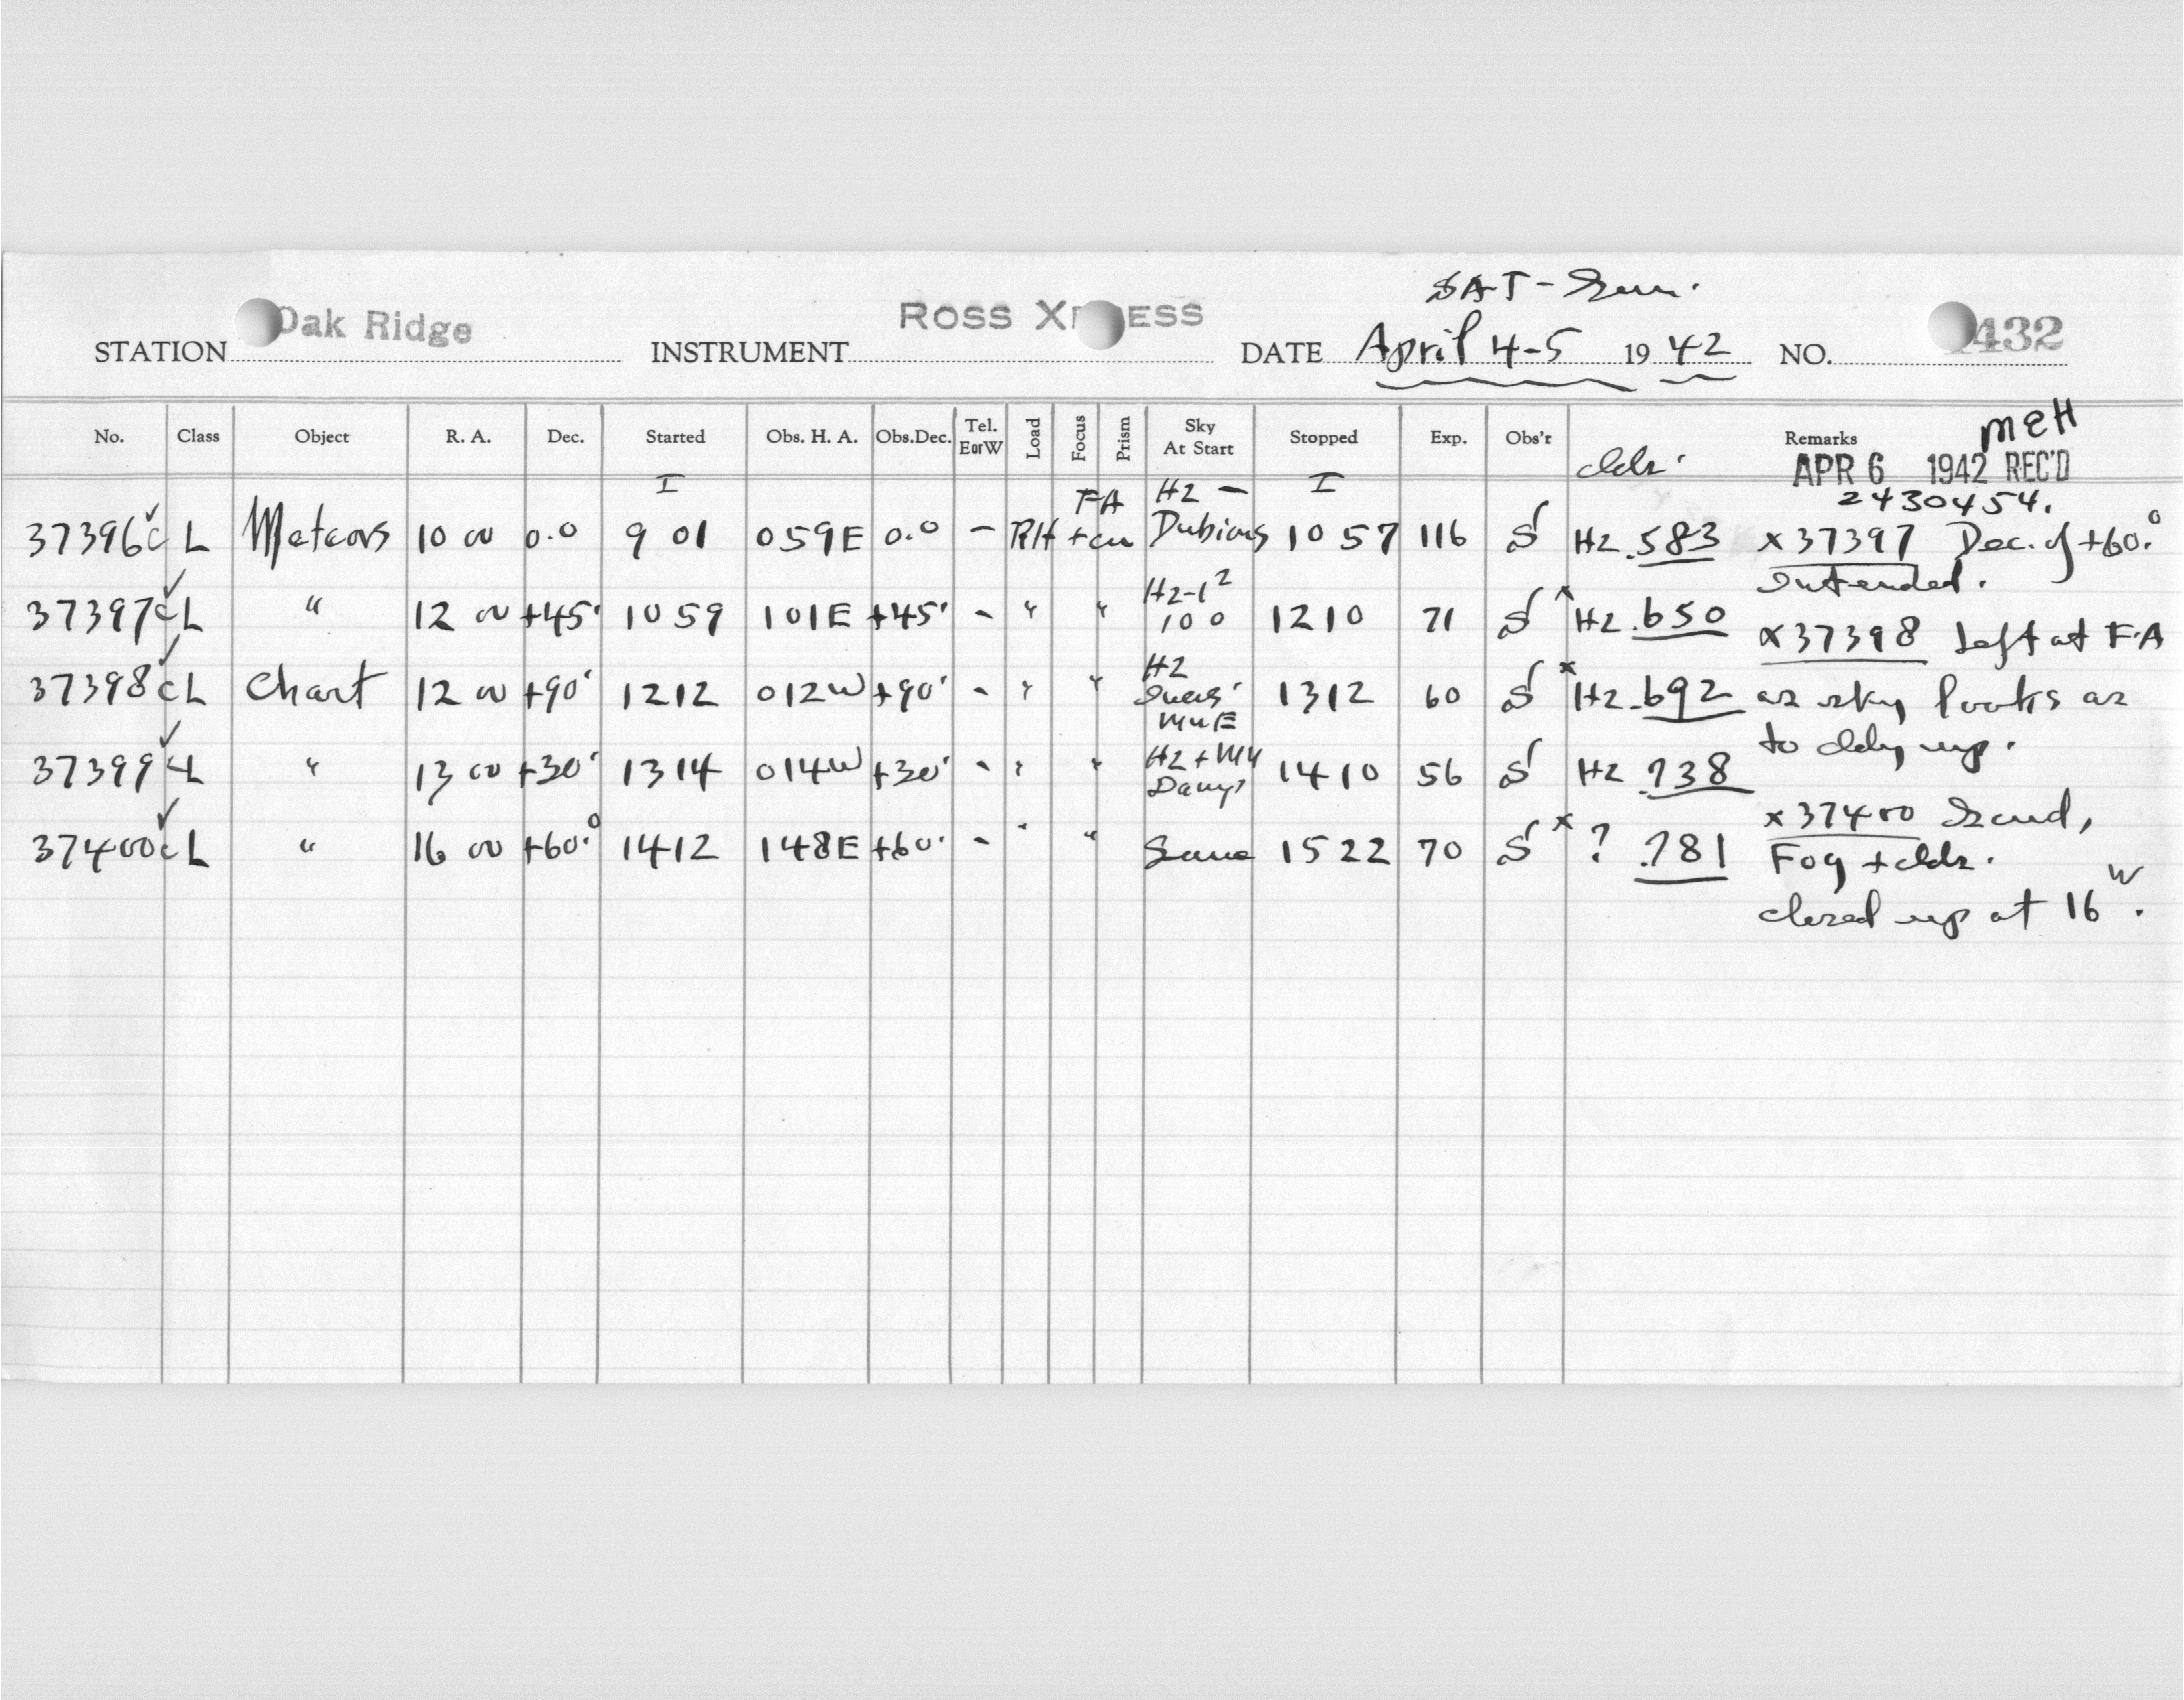 SAT - Sun.
STATION Oak Ridge INSTRUMENT ROSS X ESS DATE April 4-5 1942 NO. 432
No. Class Object R. A. Dec. Started Obs. H. A. Obs.Dec. Tel. E or W Load Focus Prism Sky At Start Stopped Exp. Obs'r Remarks
MEH
I I clds. APR 6 1942 REC'D
2430454.
37396 c L Meteors 10 00 0.0 9 01 0 59 E 0.0 - RH FA Hz - Dubious 10 57 116 S Hz .583 x 37397 Dec. of +60.°
intended.
37397 c L " 12 00 +45. 10 59 1 01 E +45. - " " Hz-1² 100 12 10 71 S x Hz .650 x 37398 Left at F.A
37398 c L Chart 12 00 +90. 12 12 0 12 W +90. - " " Hz 13 12 60 S x Hz .692 as sky looks as
to cldy up.
37399 c L " 13 00 +30. 13 14 0 14 W +30. - " " Hz + 14 10 56 S Hz .738
37400 c L " 16 00 +60.° 14 12 1 48 E +60. - " " Same 15 22 70 S x ? .781 x 37400 Scud,
Fog + clds.
closed up at 16